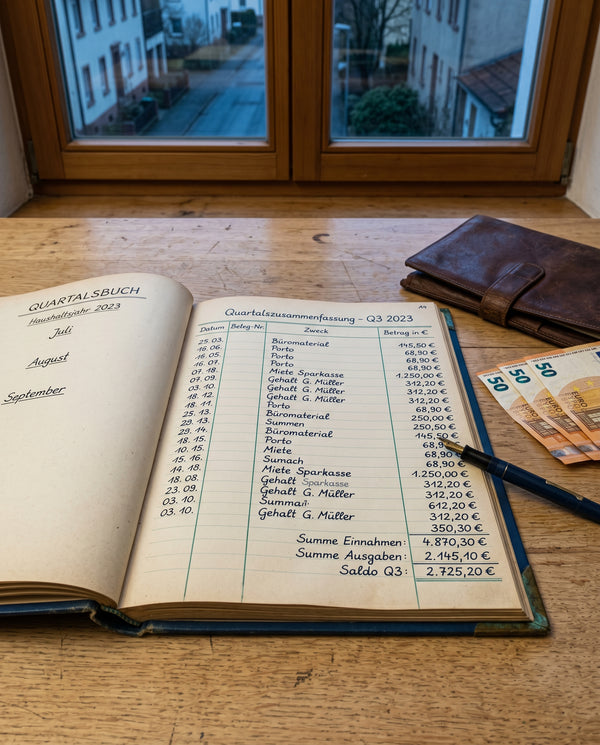 QUARTALSBUCH
Haushaltsjahr 2023
Juli
August
September
14
Quartalszusammenfassung – Q3 2023
Datum Beleg-Nr. Zweck Betrag in €
25.03. Büromaterial 145,50 €
16.06. Porto 68,90 €
16.05. Porto 68,90 €
16.07. Miete Sparkasse 1.250,00 €
07.18. Gehalt G. Müller 312,20 €
07.09. Gehalt G. Müller 312,20 €
03.10. Porto 68,90 €
18.12. Büromaterial 250,00 €
18.11. Summen 250,50 €
25.13. Büromaterial 145,50 €
29.13. Porto 68,9
29.14. Miete 68,90 €
18.15. Sumach 68,90 €
10.15. Miete Sparkasse 1.250,00 €
15.16. Gehalt Sparkasse 312,20 €
14.18. Gehalt G. Müller 312,20 €
18.08. 612,20 €
23.09. Gehalt G. Müller 312,20 €
03.10. 350,30 €
03.10.
Summe Einnahmen: 4.870,30 €
Summe Ausgaben: 2.145,10 €
Saldo Q3: 2.725,20 €
50
50
50
EURO